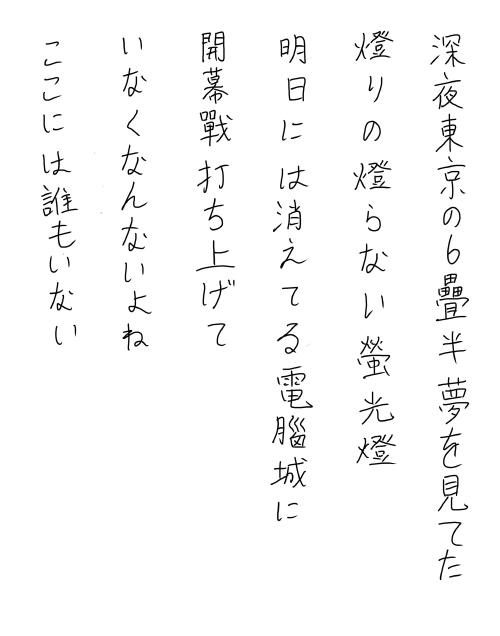 深夜東京の6疊半夢を見てた
燈りの燈らない螢光燈
明日には消えてる電腦城に
開幕戰打ち上げて
いなくなんないよね
ここには誰もいない